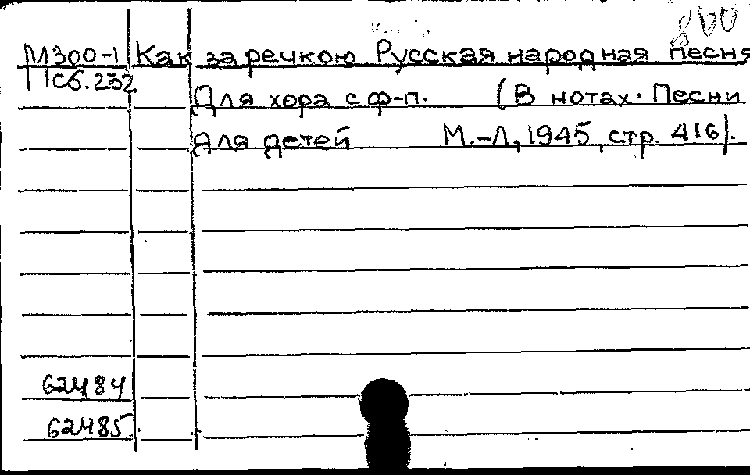 800
М300-1 Как за речкою Русская народная песня
Сб.232
Для хора с ф-п. (В нотах. Песни
для детей М.-Л, 1945, стр. 416).
62484
62485